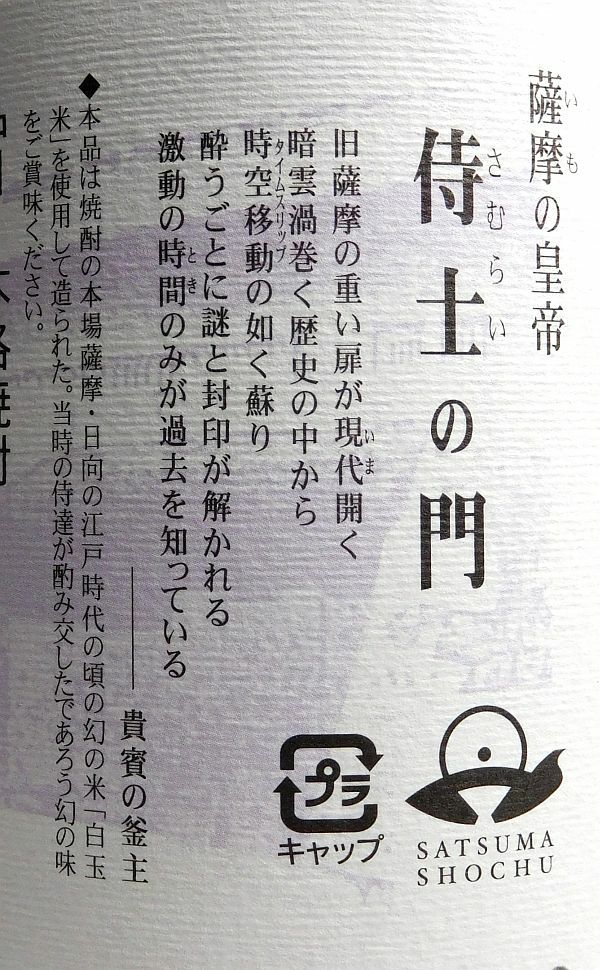 薩摩の皇帝
いも
侍士の門
さむらい
旧薩摩の重い扉が現代開く
いま
暗雲渦巻く歴史の中から
時空移動の如く蘇り
タイムスリップ
酔うごとに謎と封印が解かれる
激動の時間のみが過去を知っている
とき
貴賓の釜主
◆本品は焼酎の本場薩摩・日向の江戸時代の頃の幻の米「白玉
米」を使用して造られた。当時の侍達が酌み交したであろう幻の味
をご賞味ください。
プラ
キャップ
SATSUMA
SHOCHU